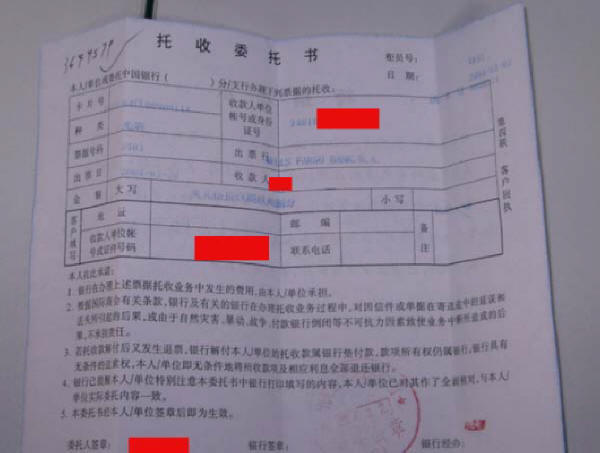 托收委托书
柜员号：
日期：
本人/单位或委托中国银行（ ）分/支行办理下列票据的托收。
卡片号
收款人单位帐号或身份证号
种类
票据号码
出票行 WELLS FARGO BANK N.A.
出票日
收款人
金额 大写
小写
第四联 客户回执
客户填写
地址
邮编
备注
收款人单位帐号或证件号码
联系电话
本人在此承诺：
1. 银行在办理上述票据托收业务中发生的费用，由本人/单位承担。
2. 根据国际商会有关条款，银行及有关的银行在办理托收业务过程中，对因信件或单据在寄送途中的延误和
遗失所引起的后果，或由于自然灾害、暴动、战争、付款银行倒闭等不可抗力因素致使业务中断所造成的后
果，不承担责任。
3. 若托收款解付后又发生退票，银行解付本人/单位的托收款属银行垫付款，款项所有权仍属银行，银行具有
无条件的追索权，本人/单位即无条件地将所收款项及相应利息全部退还银行。
4. 银行已提醒本人/单位特别注意本委托书中银行打印填写的内容，本人/单位已对其作了全面核对，与本人/
单位实际委托内容一致。
5. 本委托书经本人/单位签章后即为生效。
委托人签章：
银行签章：
银行经办：